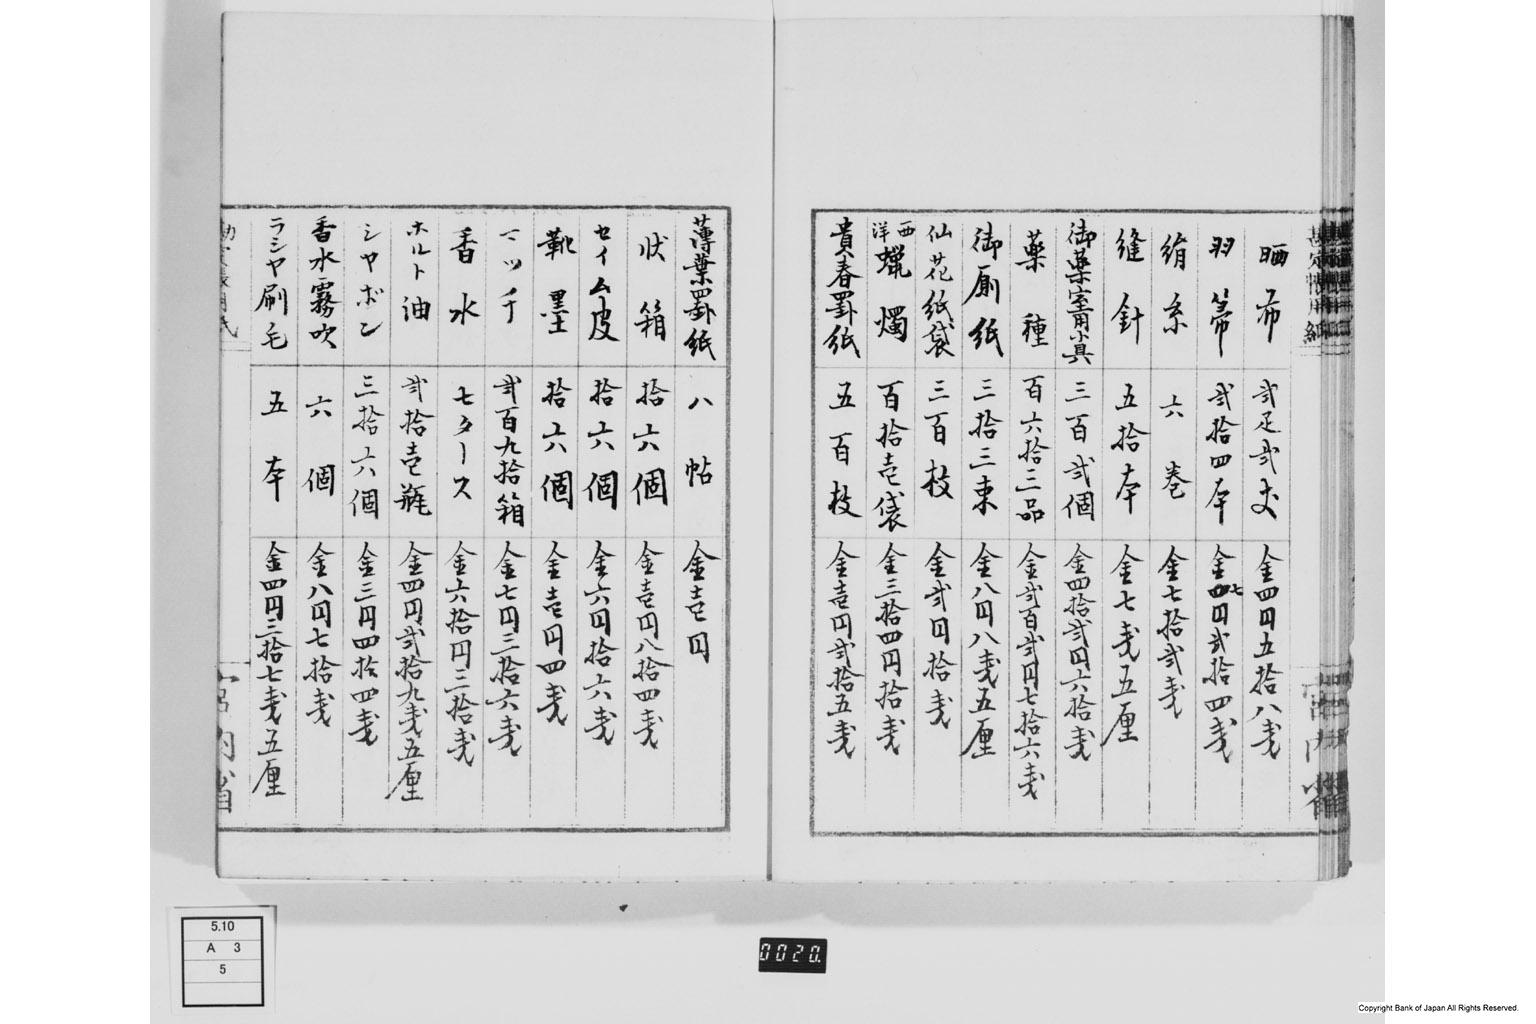 晒布 弐疋弐丈 金四円五拾八戔
羽箒 弐拾四本 金四七円弐拾四戔
絹糸 六巻 金七拾弐戔
縫針 五拾本 金七戔五厘
御薬室用小具 三百弐個 金四拾弐円六拾戔
薬種 百六拾三品 金弐百弐円七拾六戔
御厠紙 三拾三束 金八円八戔五厘
仙花紙袋 三百枚 金弐円拾戔
西洋蠟燭 百拾壱袋 金三拾四円拾戔
貴春罫紙 五百枚 金壱円弐拾五戔
薄葉罫紙 八帖 金壱円
状箱 拾六個 金壱円八拾四戔
セイム皮 拾六個 金六円拾六戔
靴墨 拾六個 金壱円四戔
マッチ 弐百九拾箱 金七円三拾六戔
香水 七タース 金六拾円三拾戔
ホルト油 弐拾壱瓶 金四円弐拾九戔五厘
シヤボン 三拾六個 金三円四拾四戔
香水霧吹 六個 金八円七拾戔
ラシヤ刷毛 五本 金四円三拾七戔五厘
宮内省
5.10
A 3
5
0020.
Copyright Bank of Japan All Rights Reserved.